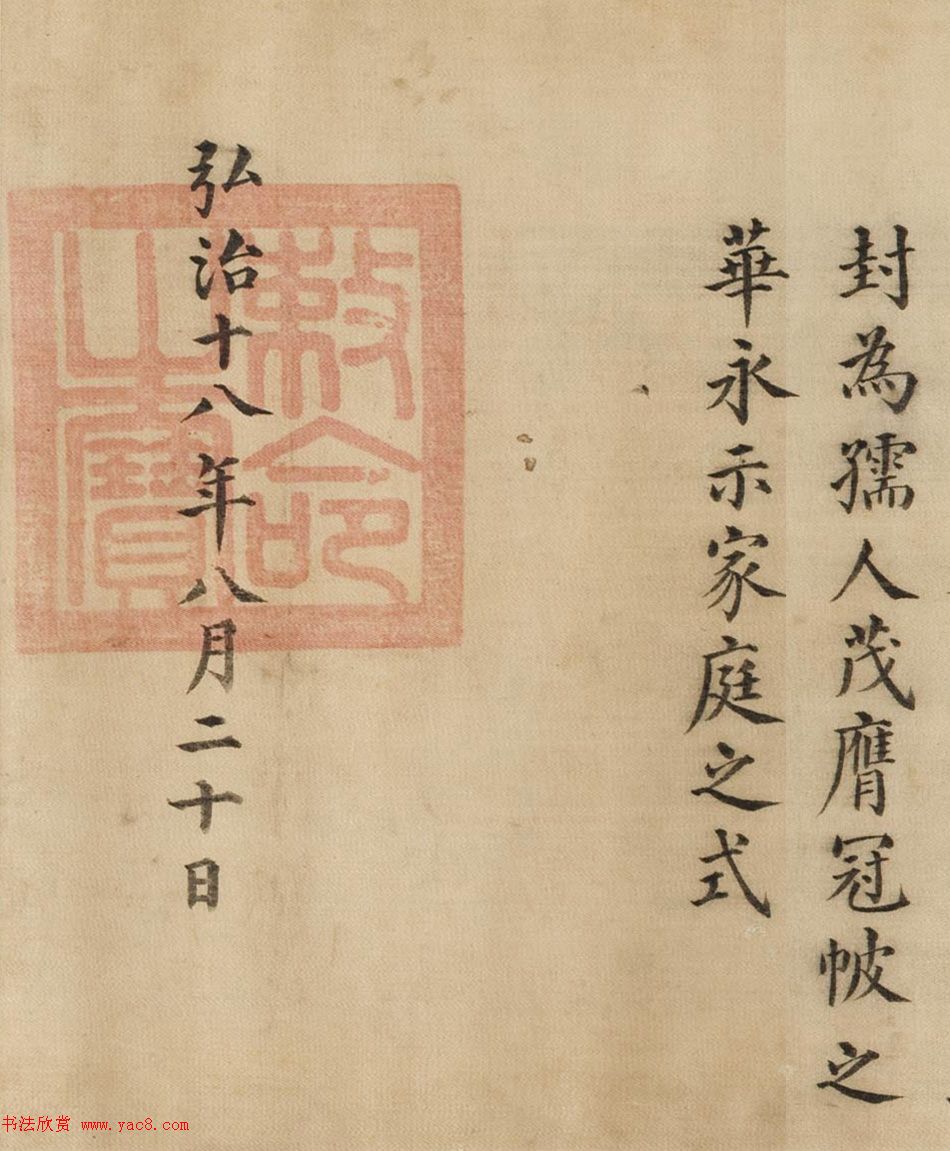 封為孺人茂膺冠帔之
華永示家庭之式
弘治十八年八月二十日
敕命之寶
书法欣赏 www.yac8.com